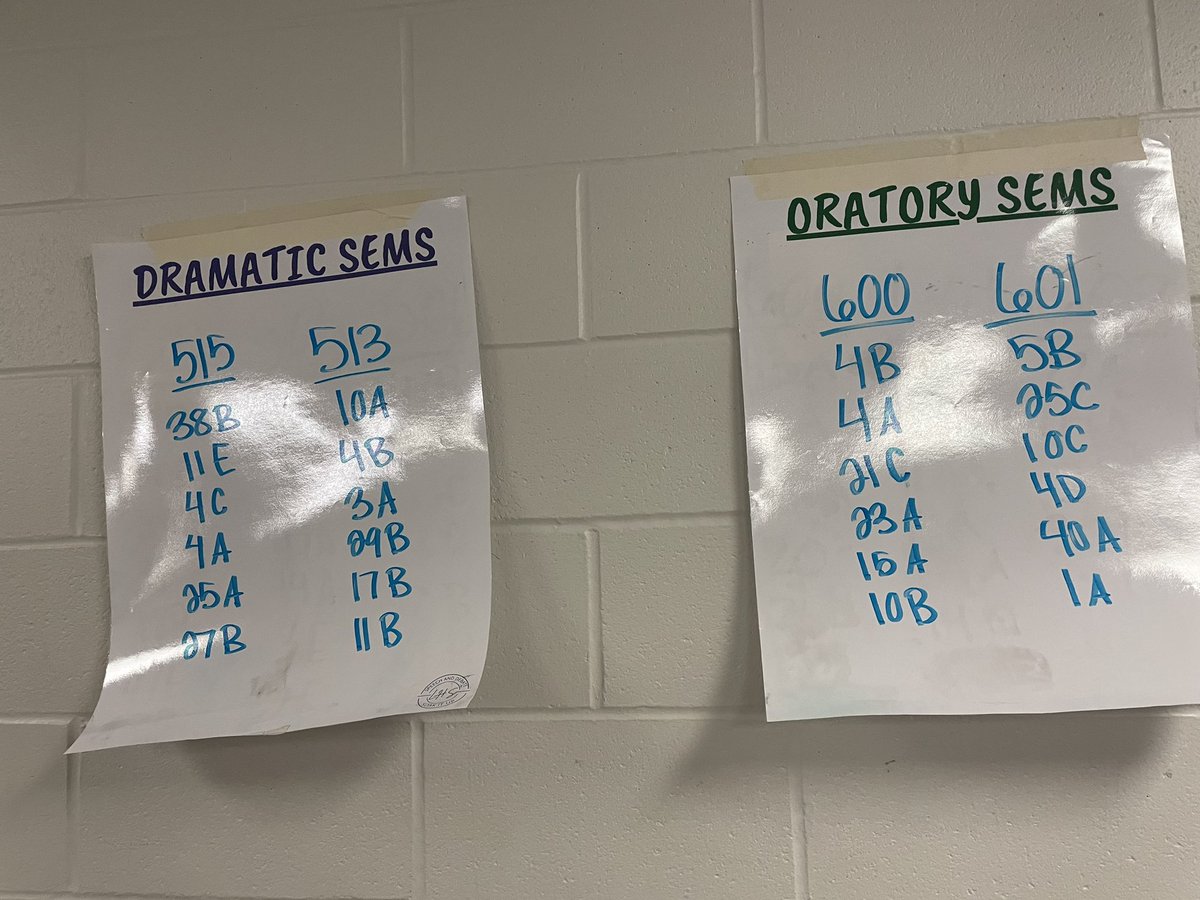 DRAMATIC SEMS
515 513
38B 10A
11E 4B
4C 3A
4A 29B
25A 17B
27B 11B
SPEECH AND
LHS
ORATORY SEMS
600 601
4B 5B
4A 25C
21C 10C
23A 4D
15A 40A
10B 1A